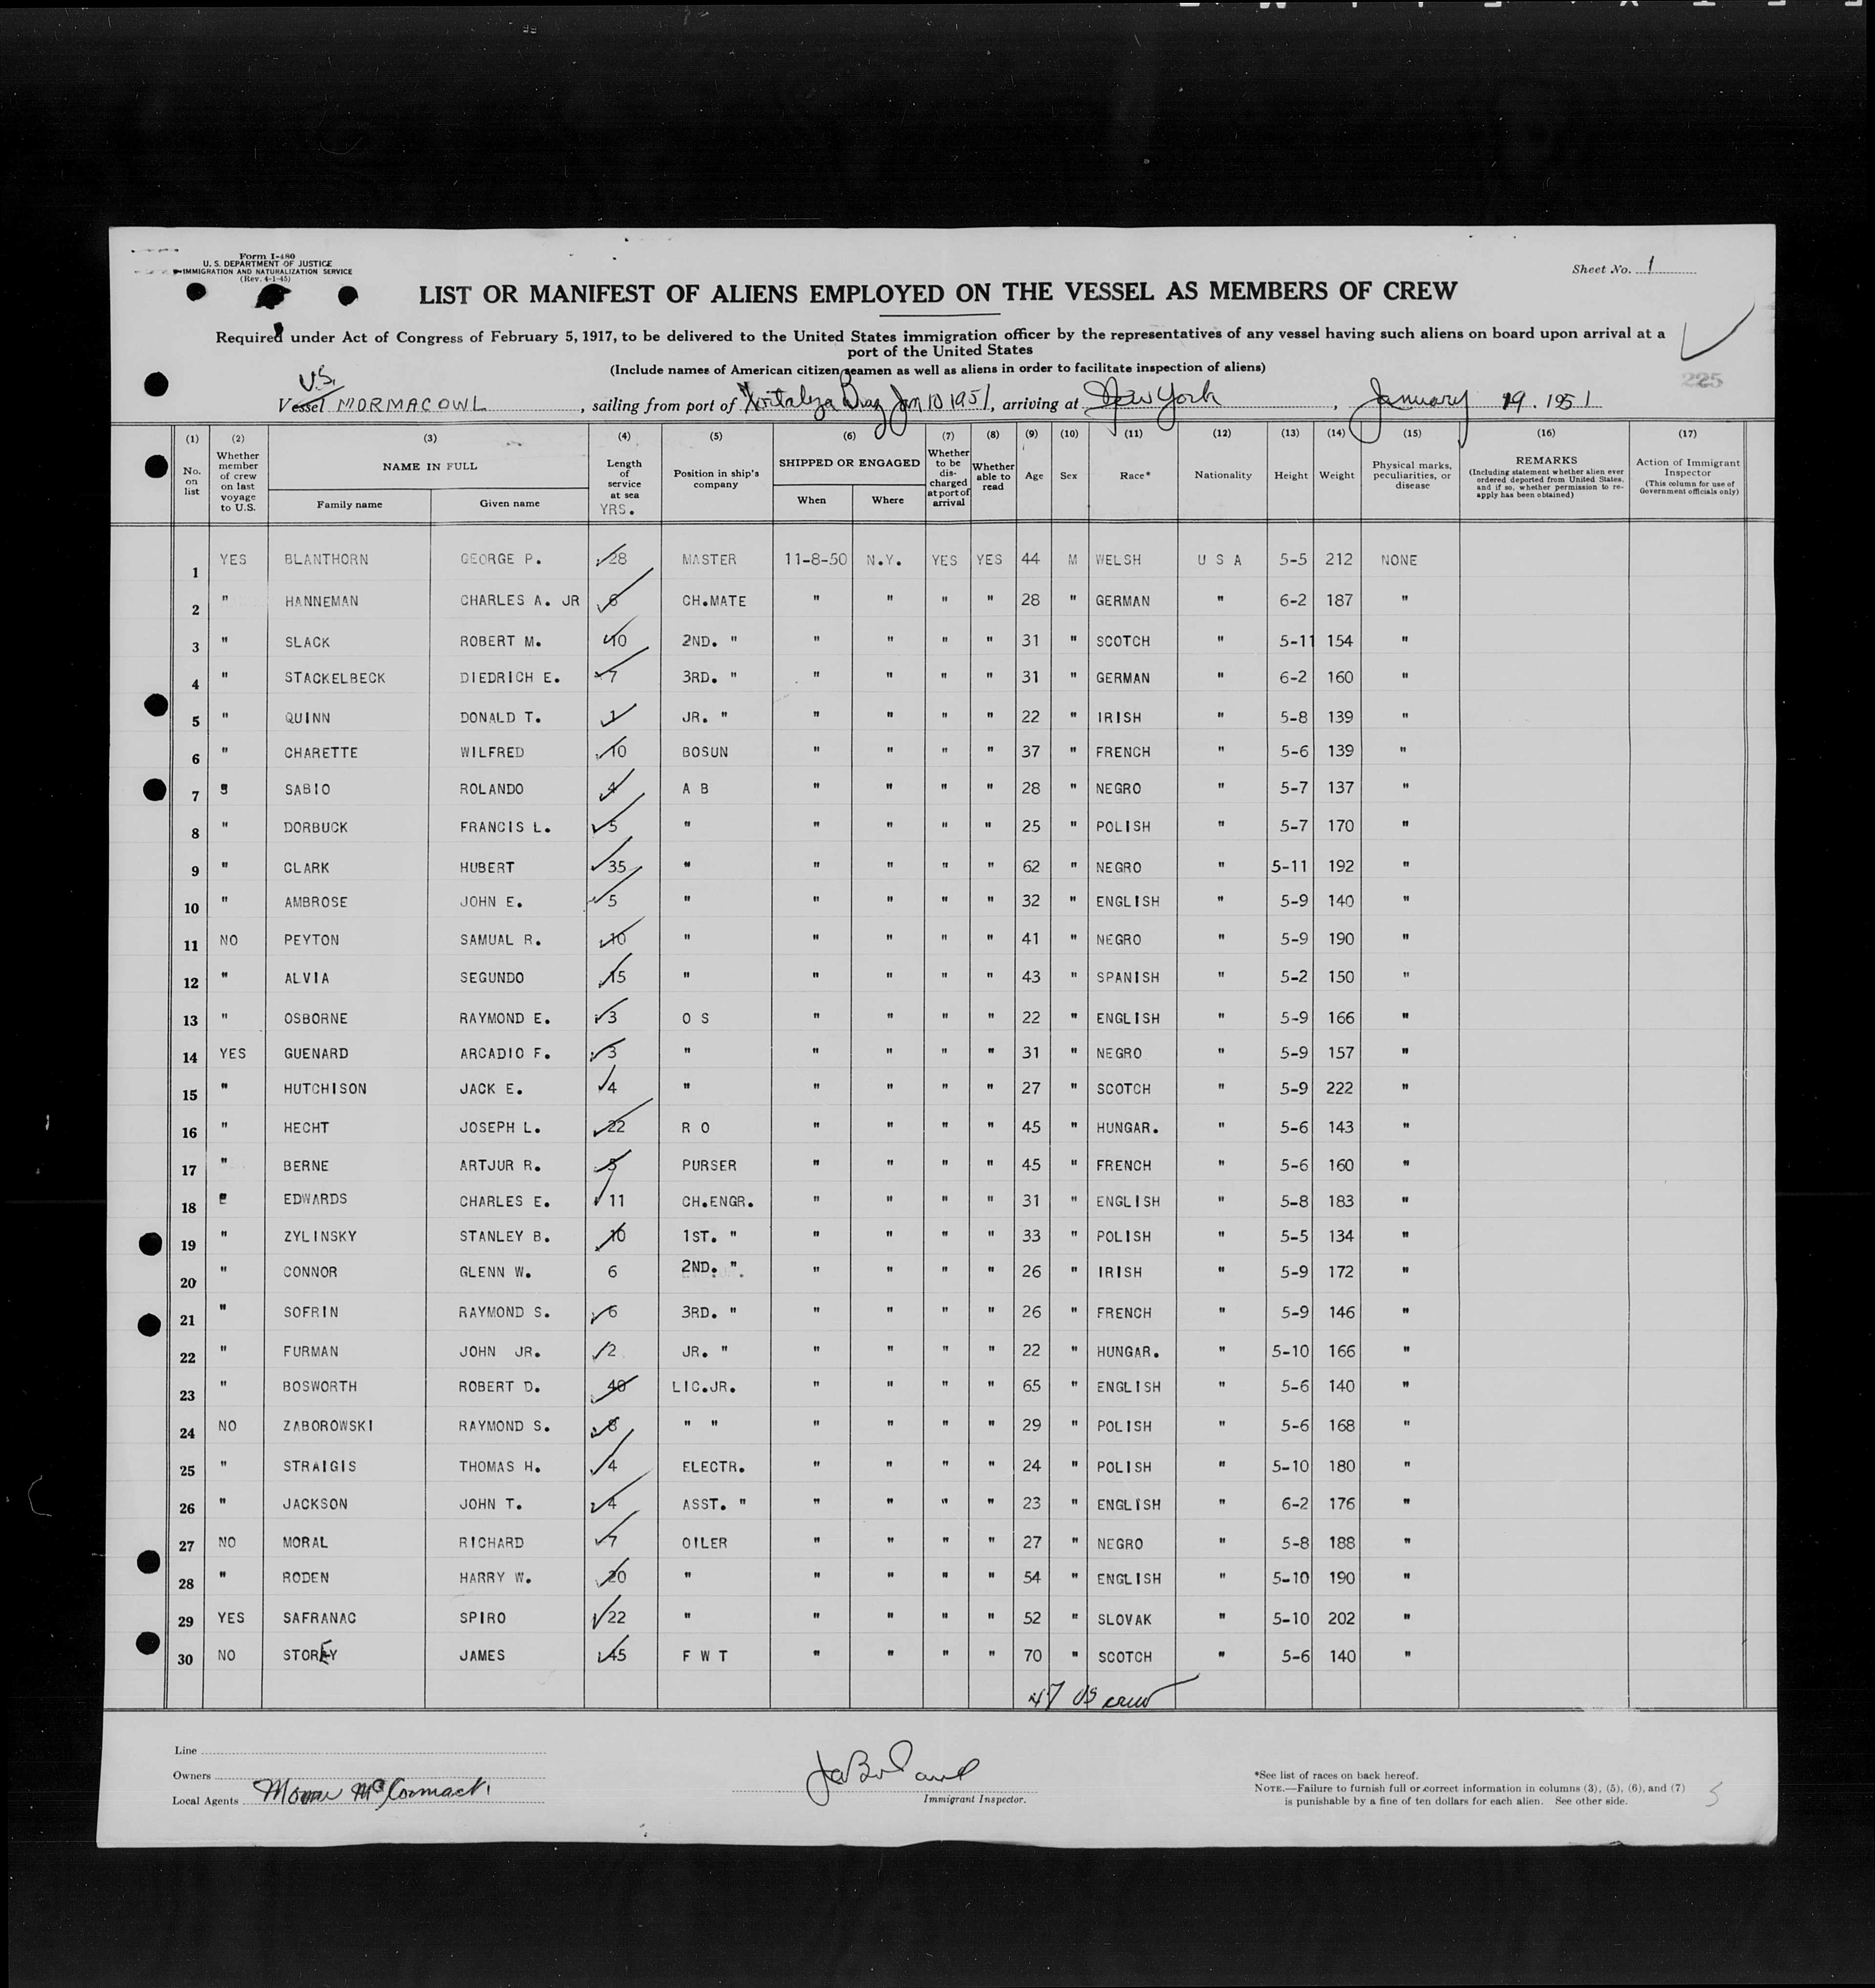 Form I-480
U. S. DEPARTMENT OF JUSTICE
IMMIGRATION AND NATURALIZATION SERVICE
(Rev. 4-1-45)
Sheet No. 1
LIST OR MANIFEST OF ALIENS EMPLOYED ON THE VESSEL AS MEMBERS OF CREW
Required under Act of Congress of February 5, 1917, to be delivered to the United States immigration officer by the representatives of any vessel having such aliens on board upon arrival at a
port of the United States
(Include names of American citizen seamen as well as aliens in order to facilitate inspection of aliens)
225
U.S.
Vessel MORMACOWL, sailing from port of Braz Jan 10 1951, arriving at New York, January 19. 1951
(1) (2) (3) (4) (5) (6) (7) (8) (9) (10) (11) (12) (13) (14) (15) (16) (17)
No. on list
Whether member of crew on last voyage to U.S.
NAME IN FULL
Family name
Given name
Length of service at sea
YRS.
Position in ship's company
SHIPPED OR ENGAGED
When
Where
Whether to be dis-charged at port of arrival
Whether able to read
Age
Sex
Race*
Nationality
Height
Weight
Physical marks, peculiarities, or disease
REMARKS
(Including statement whether alien ever ordered deported from United States, and if so, whether permission to re-apply has been obtained)
Action of Immigrant Inspector
(This column for use of Government officials only)
1 YES BLANTHORN GEORGE P. 28 MASTER 11-8-50 N.Y. YES YES 44 M WELSH U S A 5-5 212 NONE
2 " HANNEMAN CHARLES A. JR 6 CH.MATE " " " " 28 " GERMAN " 6-2 187 "
3 " SLACK ROBERT M. 10 2ND. " " " " " 31 " SCOTCH " 5-11 154 "
4 " STACKELBECK DIEDRICH E. 7 3RD. " " " " " 31 " GERMAN " 6-2 160 "
5 " QUINN DONALD T. 1 JR. " " " " " 22 " IRISH " 5-8 139 "
6 " CHARETTE WILFRED 10 BOSUN " " " " 37 " FRENCH " 5-6 139 "
7 " SABIO ROLANDO 4 A B " " " " 28 " NEGRO " 5-7 137 "
8 " DORBUCK FRANCIS L. 5 " " " " " 25 " POLISH " 5-7 170 "
9 " CLARK HUBERT 35 " " " " " 62 " NEGRO " 5-11 192 "
10 " AMBROSE JOHN E. 5 " " " " " 32 " ENGLISH " 5-9 140 "
11 NO PEYTON SAMUAL R. 10 " " " " " 41 " NEGRO " 5-9 190 "
12 " ALVIA SEGUNDO 15 " " " " " 43 " SPANISH " 5-2 150 "
13 " OSBORNE RAYMOND E. 3 O S " " " " 22 " ENGLISH " 5-9 166 "
14 YES GUENARD ARCADIO F. 3 " " " " " 31 " NEGRO " 5-9 157 "
15 " HUTCHISON JACK E. 4 " " " " " 27 " SCOTCH " 5-9 222 "
16 " HECHT JOSEPH L. 22 R O " " " " 45 " HUNGAR. " 5-6 143 "
17 " BERNE ARTJUR R. 5 PURSER " " " " 45 " FRENCH " 5-6 160 "
18 " EDWARDS CHARLES E. 11 CH.ENGR. " " " " 31 " ENGLISH " 5-8 183 "
19 " ZYLINSKY STANLEY B. 10 1ST. " " " " " 33 " POLISH " 5-5 134 "
20 " CONNOR GLENN W. 6 2ND. " " " " " 26 " IRISH " 5-9 172 "
21 " SOFRIN RAYMOND S. 6 3RD. " " " " " 26 " FRENCH " 5-9 146 "
22 " FURMAN JOHN JR. 2 JR. " " " " " 22 " HUNGAR. " 5-10 166 "
23 " BOSWORTH ROBERT D. 40 LIC.JR. " " " " 65 " ENGLISH " 5-6 140 "
24 NO ZABOROWSKI RAYMOND S. 8 " " " " " " 29 " POLISH " 5-6 168 "
25 " STRAIGIS THOMAS H. 4 ELECTR. " " " " 24 " POLISH " 5-10 180 "
26 " JACKSON JOHN T. 4 ASST. " " " " " 23 " ENGLISH " 6-2 176 "
27 NO MORAL RICHARD 7 OILER " " " " 27 " NEGRO " 5-8 188 "
28 " RODEN HARRY W. 20 " " " " " 54 " ENGLISH " 5-10 190 "
29 YES SAFRANAC SPIRO 22 " " " " " 52 " SLOVAK " 5-10 202 "
30 NO STOREY JAMES 45 F W T " " " " 70 " SCOTCH " 5-6 140 "
47 US crew
Line
Owners
Local Agents Moore McCormack
Immigrant Inspector.
*See list of races on back hereof.
NOTE.—Failure to furnish full or correct information in columns (3), (5), (6), and (7)
is punishable by a fine of ten dollars for each alien. See other side.
5